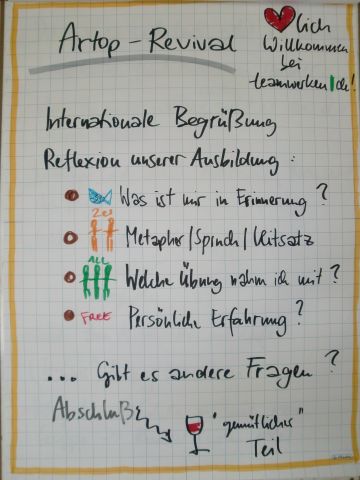 Artop - Revival
❤lich
Willkommen
bei
teamwerken|.de!
Internationale Begrüßung
Reflexion unserer Ausbildung:
Was ist mir in Erinnerung?
Zu
Metapher/Spruch/Witzsatz
ALL
Welche Übung nahm ich mit?
FREE
Persönliche Erfahrung?
... Gibt es andere Fragen?
Abschluß
"gemütlicher"
Teil